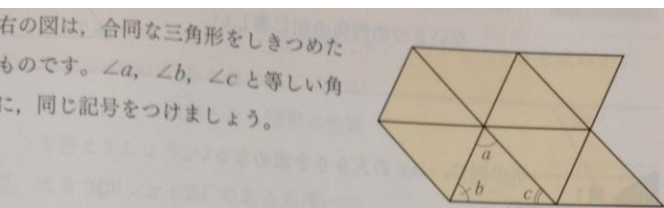 右の図は，合同な三角形をしきつめた
ものです。∠a，∠b，∠cと等しい角
に，同じ記号をつけましょう。
a
b
c